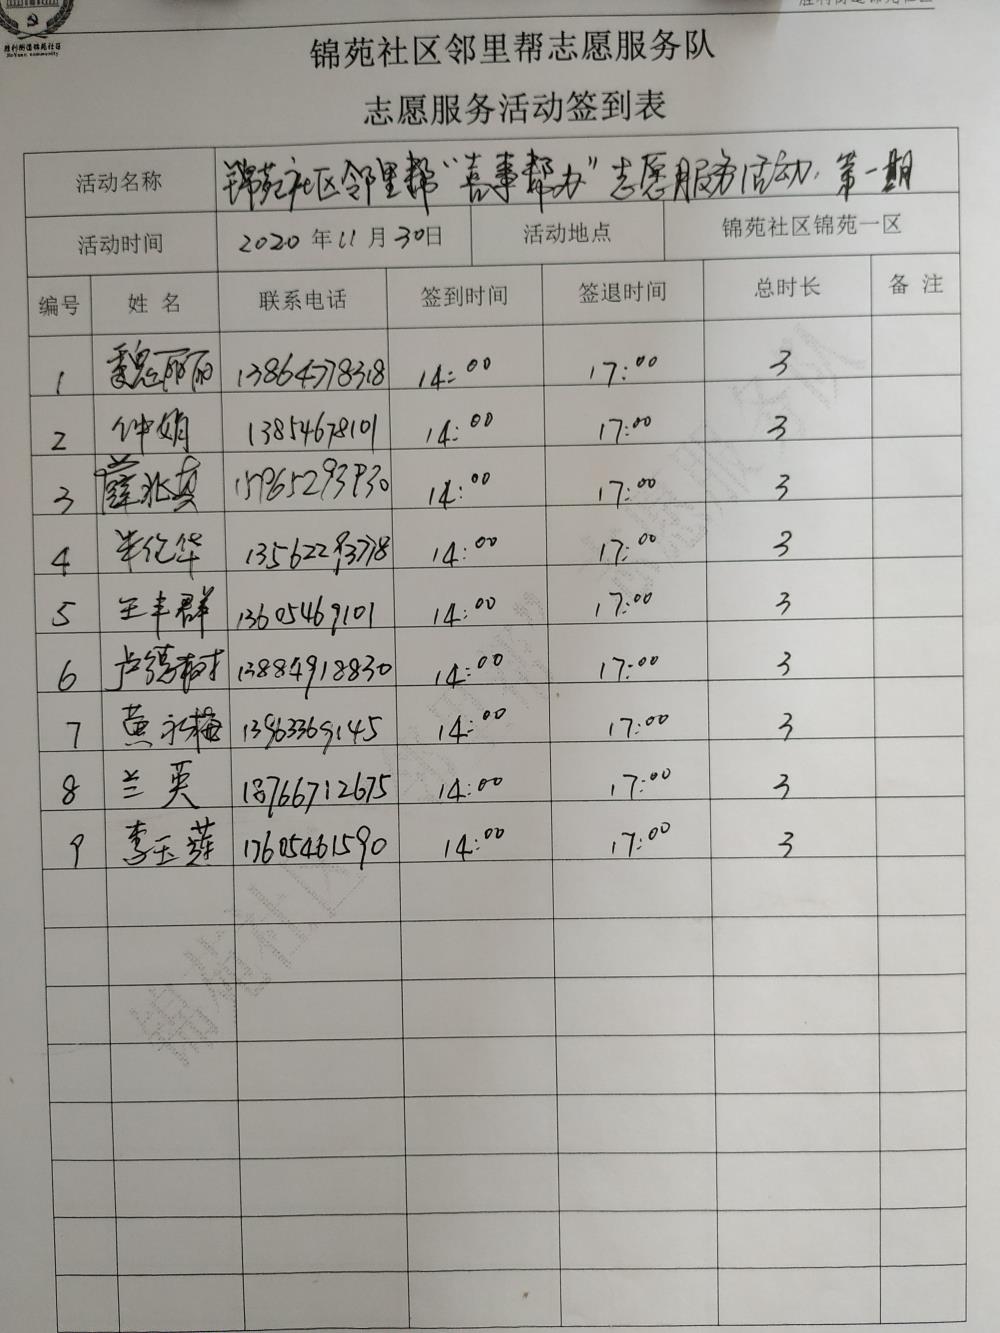 胜利街道锦苑社区
锦苑社区邻里帮志愿服务队
志愿服务活动签到表
活动名称 锦苑社区邻里帮“喜事帮办”志愿服务活动，第一期
活动时间 2020年11月30日 活动地点 锦苑社区锦苑一区
编号 姓名 联系电话 签到时间 签退时间 总时长 备注
1 魏丽丽 13864778318 14:00 17:00 3
2 仲娟 13854678101 14:00 17:00 3
3 薛兆英 15965293930 14:00 17:00 3
4 13562293778 14:00 17:00 3
5 王丰群 13605469101 14:00 17:00 3
6 卢德树 13884918830 14:00 17:00 3
7 黄永梅 13963369145 14:00 17:00 3
8 兰英 18766712675 14:00 17:00 3
9 李玉莲 17605461590 14:00 17:00 3
锦苑社区“邻里帮”志愿服务队